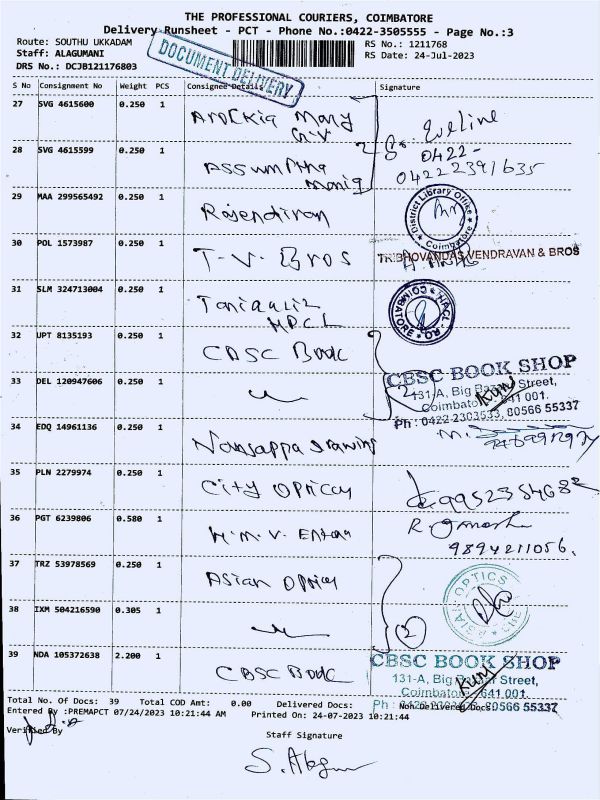 THE PROFESSIONAL COURIERS, COIMBATORE
Delivery Runsheet - PCT - Phone No.:0422-3505555 - Page No.:3
Route: SOUTHU UKKADAM
RS No.: 1211768
Staff: ALAGUMANI
RS Date: 24-Jul-2023
DRS No.: DCJB121176803
DOCUMENT DELIVERY
S No Consignment No Weight PCS Consignee Details Signature
27 SVG 4615600 0.250 1 Arockia Mary
G.V
Eveline
28 SVG 4615599 0.250 1 Assumptha
0422-
04222391635
29 MAA 299565492 0.250 1 Rajendiran
District Library Office
Coimbatore
30 POL 1573987 0.250 1 T.V. Bros
TRIBHOVANDAS VENDRAVAN & BROS
31 SLM 324713004 0.250 1
HPCL
HPCL - RO
COIMBATORE
32 UPT 8135193 0.250 1 CBSC Book
33 DEL 120947606 0.250 1
2
CBSC BOOK SHOP
131-A, Big Bazaar Street,
Coimbatore - 641 001.
Ph : 0422-2303533, 80566 55337
34 EDQ 14961136 0.250 1
35 PLN 2279974 0.250 1 City Optical
36 PGT 6239806 0.580 1 H.M.V. Enter
9894211056.
37 TRZ 53978569 0.250 1 Asian Optical
ASIAN OPTICS
38 IXM 504216590 0.305 1
2
39 NDA 105372638 2.200 1 CBSC Book
CBSC BOOK SHOP
131-A, Big Bazaar Street,
Coimbatore - 641 001.
80566 55337
Total No. Of Docs: 39 Total COD Amt: 0.00 Delivered Docs: Non Delivered Docs:
Entered By :PREMAPCT 07/24/2023 10:21:44 AM Printed On: 24-07-2023 10:21:44
Verified By
Staff Signature